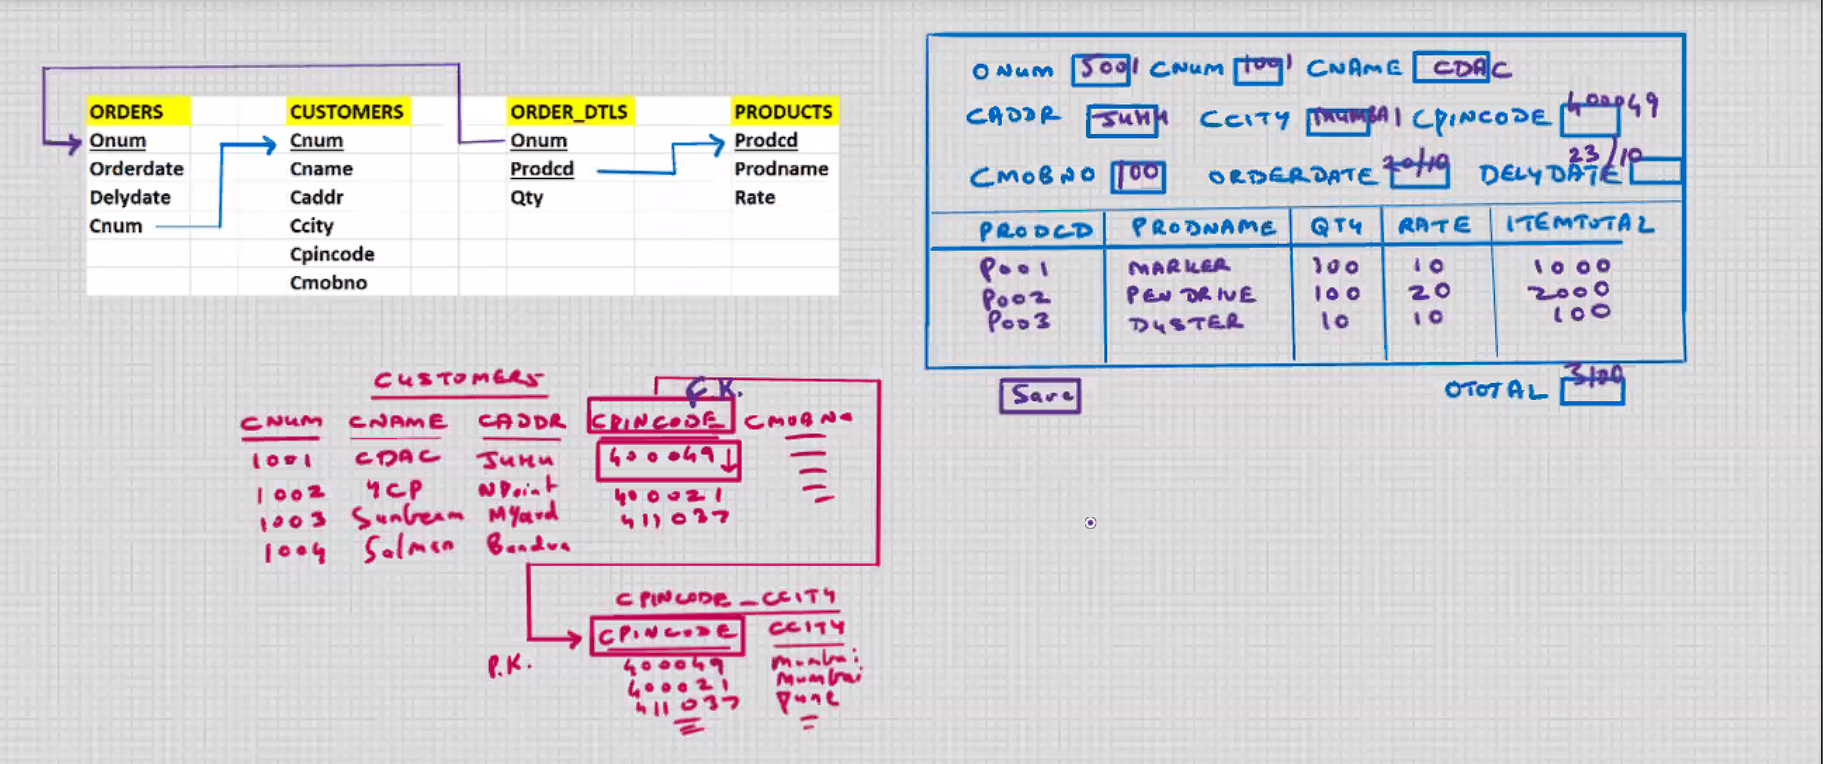 ORDERS CUSTOMERS ORDER_DTLS PRODUCTS
Onum Cnum Onum Prodcd
Orderdate Cname Prodcd Prodname
Delydate Caddr Qty Rate
Cnum Ccity
Cpincode
Cmobno
ONUM 5001 CNUM 1001 CNAME CDAC
CADDR JUHU CCITY MUMBAI CPINCODE 400049
CMOBNO 100 ORDERDATE 20/10 DELYDATE 23/10
PRODCD PRODNAME QTY RATE ITEMTOTAL
P001 MARKER 100 10 1000
P002 PEN DRIVE 100 20 2000
P003 DUSTER 10 10 100
Save OTOTAL 3100
CUSTOMERS
F.K.
CNUM CNAME CADDR CPINCODE CMOBNO
1001 CDAC JUHU 400049
1002 YCP NPoint 400021
1003 Sunbeam MYard 411037
1004 Salman Bandra
CPINCODE_CCITY
CPINCODE CCITY
P.K.
400049 Mumbai
400021 Mumbai
411037 Pune